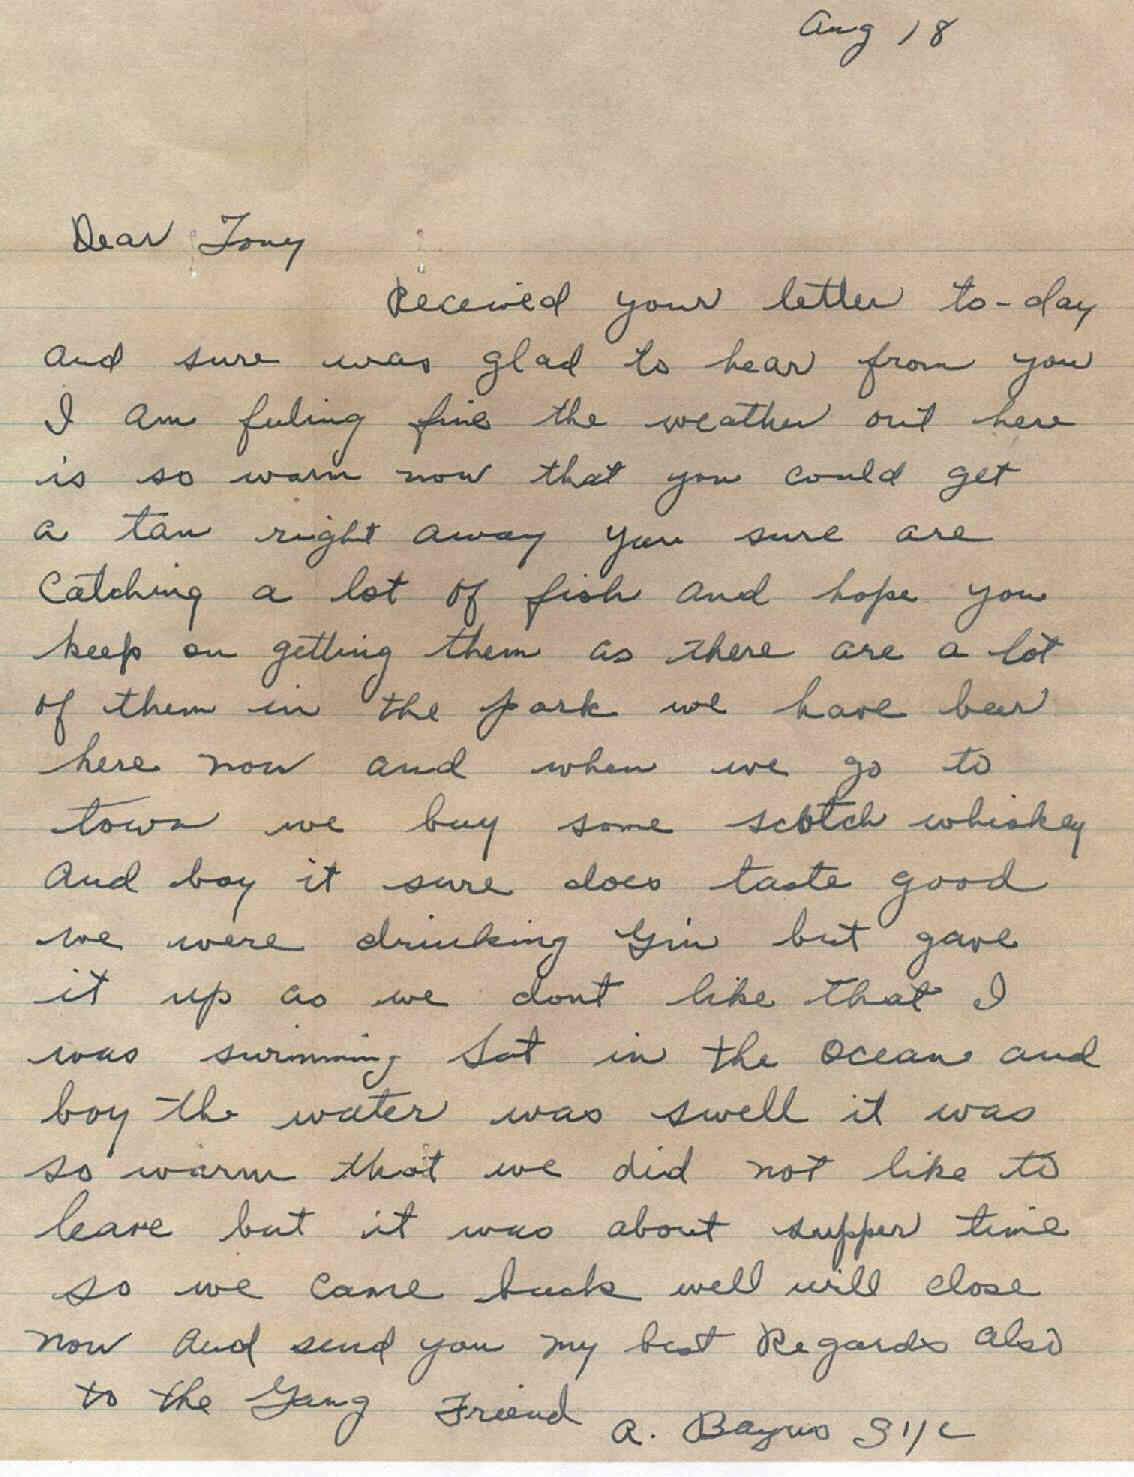 Aug 18
Dear Tony
Received your letter to-day
and sure was glad to hear from you
I am feeling fine the weather out here
is so warm now that you could get
a tan right away you sure are
Catching a lot of fish and hope you
keep on getting them as there are a lot
of them in the park we have beer
here now and when we go to
town we buy some scotch whiskey
and boy it sure does taste good
we were drinking Gin but gave
it up as we dont like that I
was swimming Sat in the Ocean and
boy the water was swell it was
so warm that we did not like to
leave but it was about supper time
so we came back well will close
now and send you my best Regards also
to the Gang Friend A. Bayus S 1/c